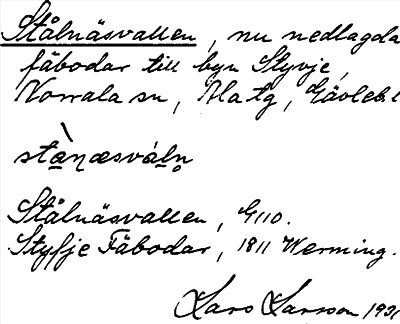 Stålnäsvallen, nu nedlagda
fäbodar till byn Styvje,
Norrala sn, Ala tg, Gävleb. l
stànæsváln
Stålnäsvallen, G110.
Styfje Fäbodar, 1811 Werming.
Lars Larsson 1931